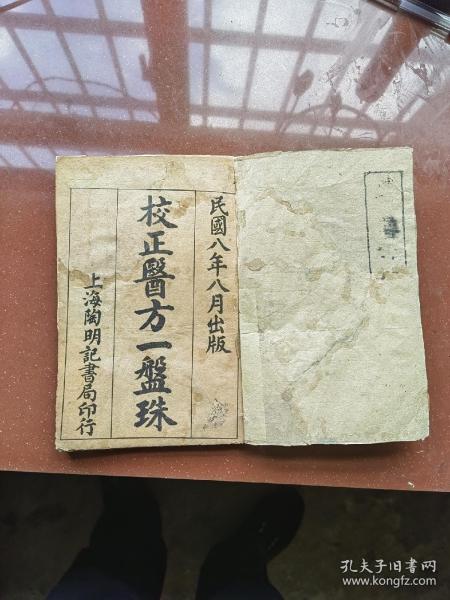 民國八年八月出版
校正醫方一盤珠
上海陶明記書局印行
孔夫子旧书网
www.kongfz.com